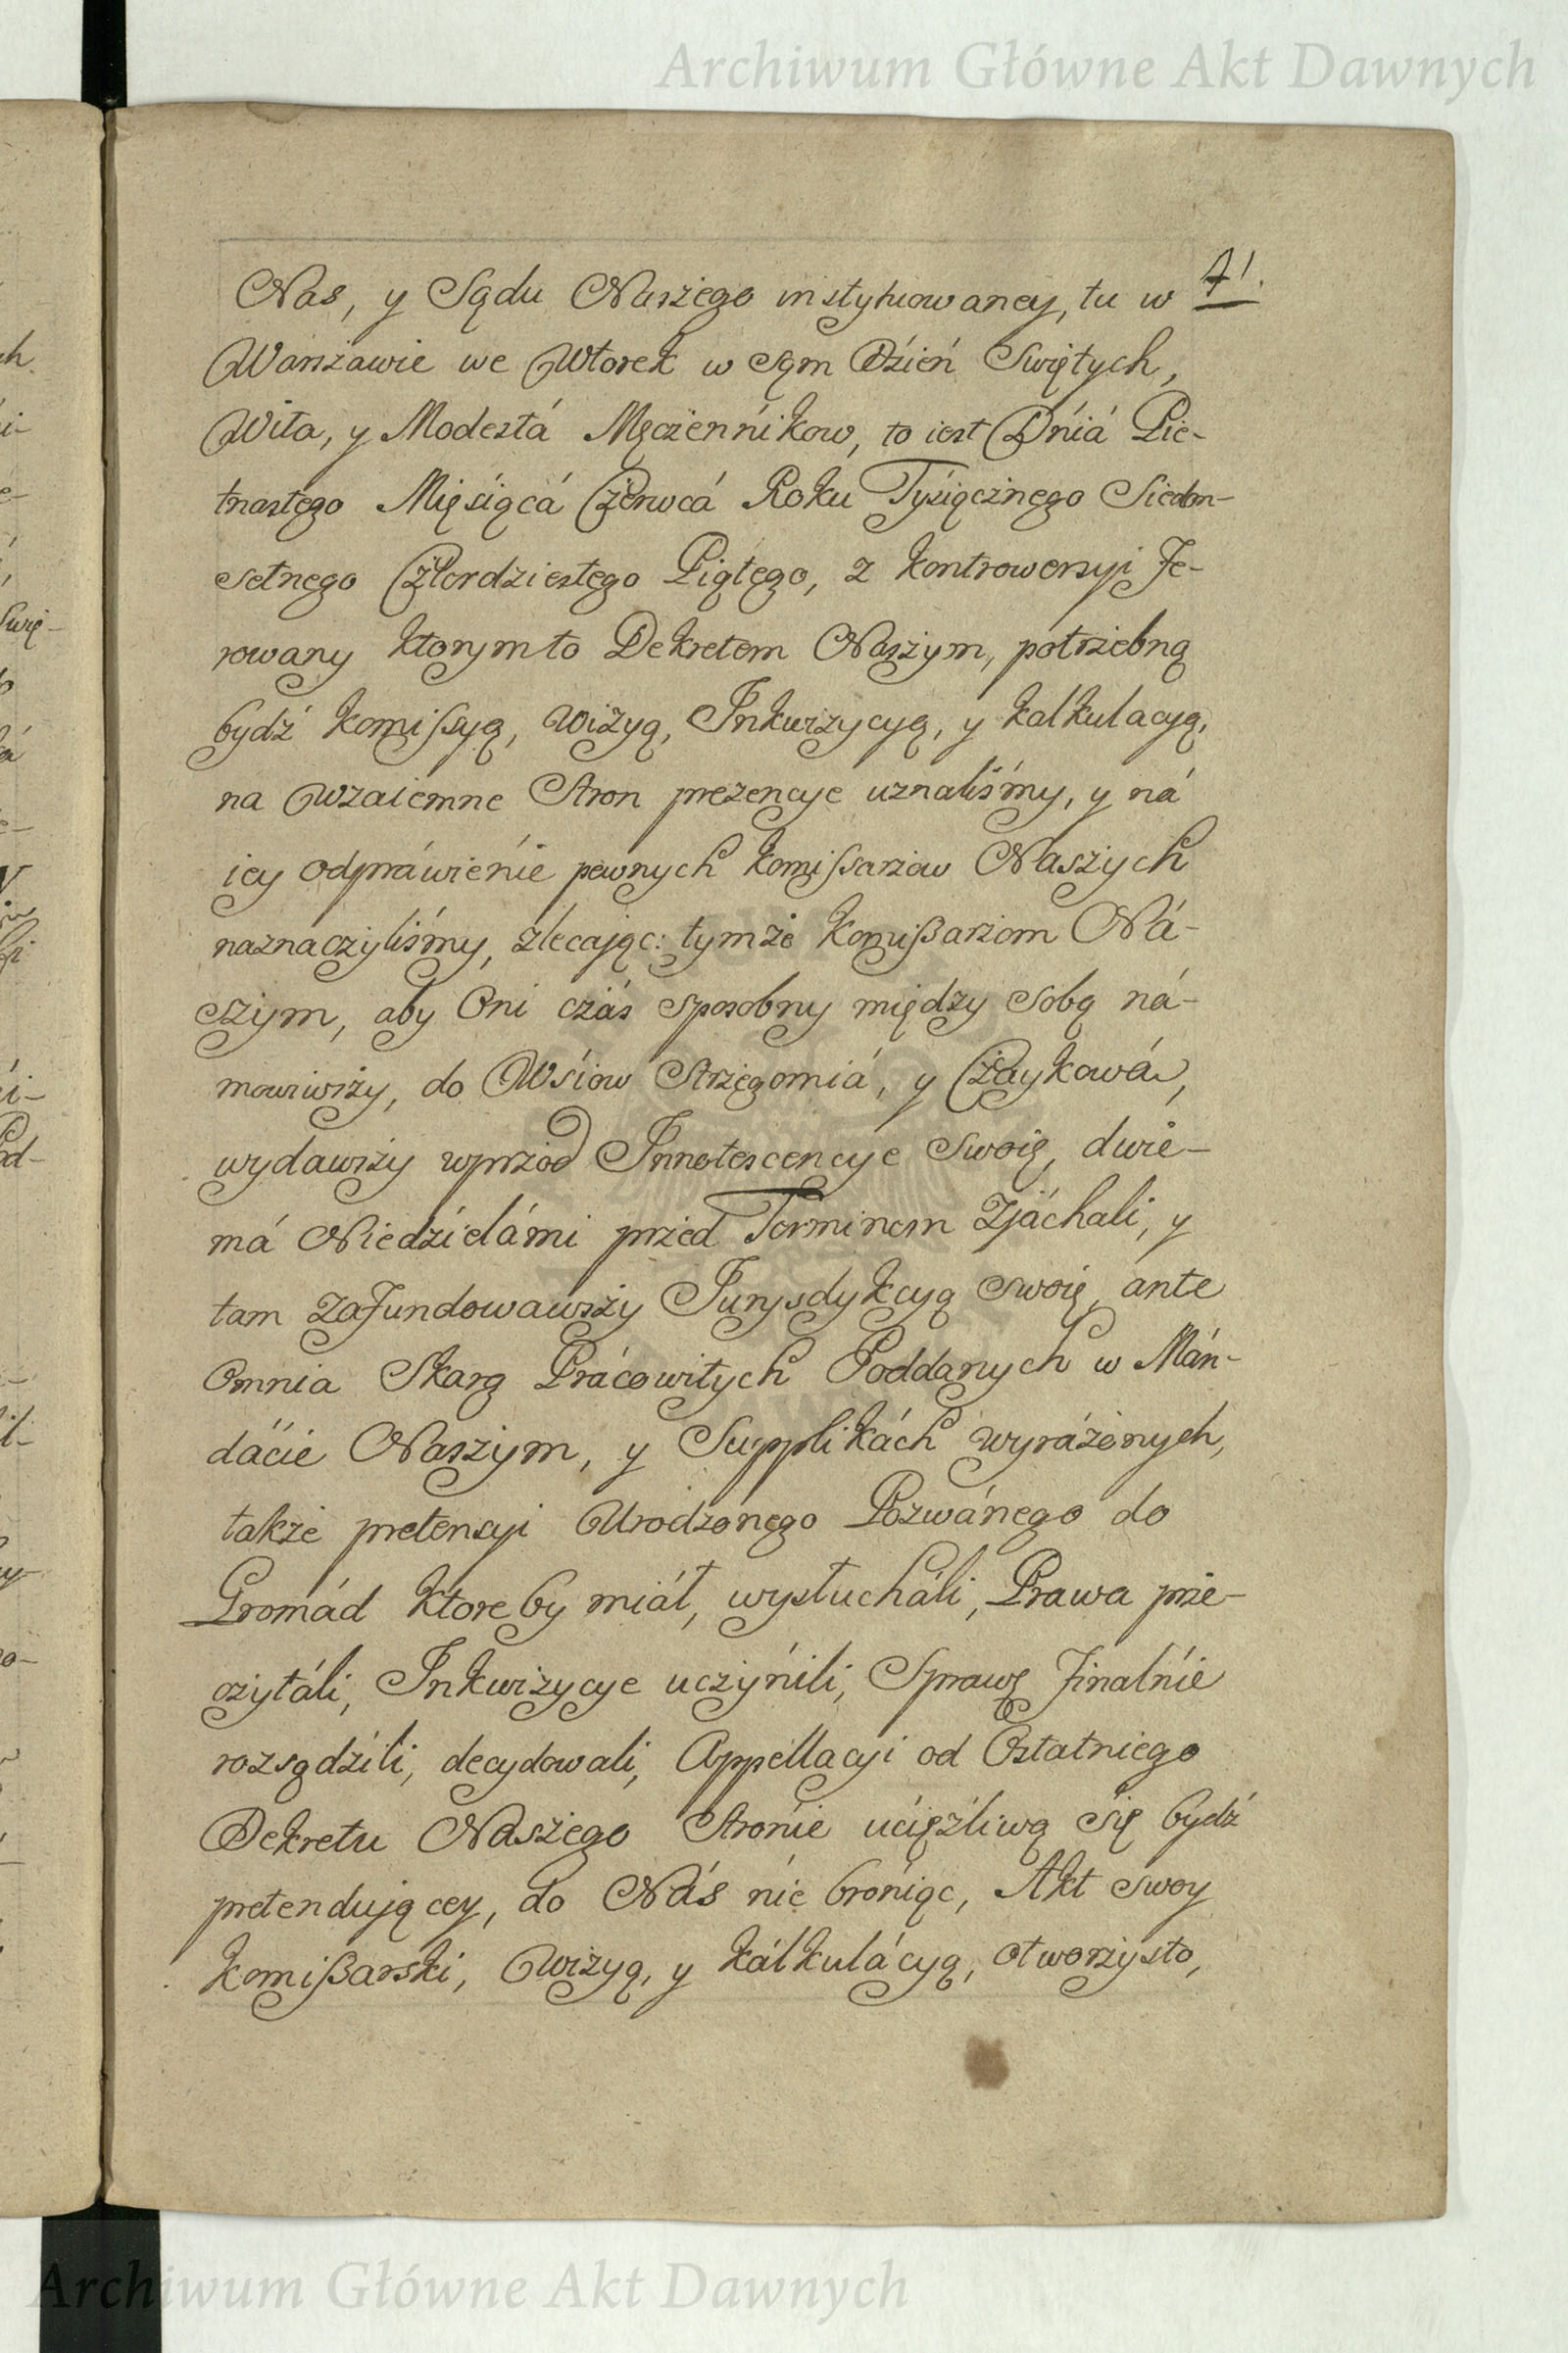 Archiwum Główne Akt Dawnych
41.
Nas, y Sądu Naszego instytuowaney, tu w
Warszawie we Wtorek w Sąm Dzień Swiętych,
Wita, y Modestá Męczenńikow, to iest Dńiá Pie-
tnastego Mięsiącá Czerwcá Roku Tysiącznego Siedm-
setnego Czterdziestego Piątego, z kontrowersyi Fe-
rowany ktorymto Dekretem Naszym, potrzebną
bydź kommissyą, wizyą, Inkwizycyą, y kalkulacyą,
na wzaiemne Stron prezencye uznaliśmy, y ná
iey odpráwieńie pewnych kommissarzow Naszych
naznaczyliśmy, zlecając: tymże kommißarzom Ná-
szym, aby Oni czás sposobny między sobą ná-
mowiwszy, do Wśiow Strzęgomiá, y Czaykowá,
wydawszy wprzod Innotescencye Swoię, dwie-
má Niedźielámi przed Terminem Zjáchali, y
tam zafundowawszy Jurysdykcyą swoię, ante
Omnia Skarg Prácowitych Poddanych w Mán-
dáćie Naszym, y Supplikách wyráżonych,
także pretensyi Urodzonego Pozwánego do
Gromád ktore by miáł, wysłucháli, Prawa prze-
czytáli, Inkwizycye uczyńili, Sprawę finalńie
rozsądźili, decydowali, Appellacyi od Ostatniego
Dekretu Naszego Strońie ućiężliwą Się bydź
pretendującey, do Nás ńie brońiąc, Akt swoy
kommißarski, Wizyą, y kálkulácyą, otworzysto,
Archiwum Główne Akt Dawnych